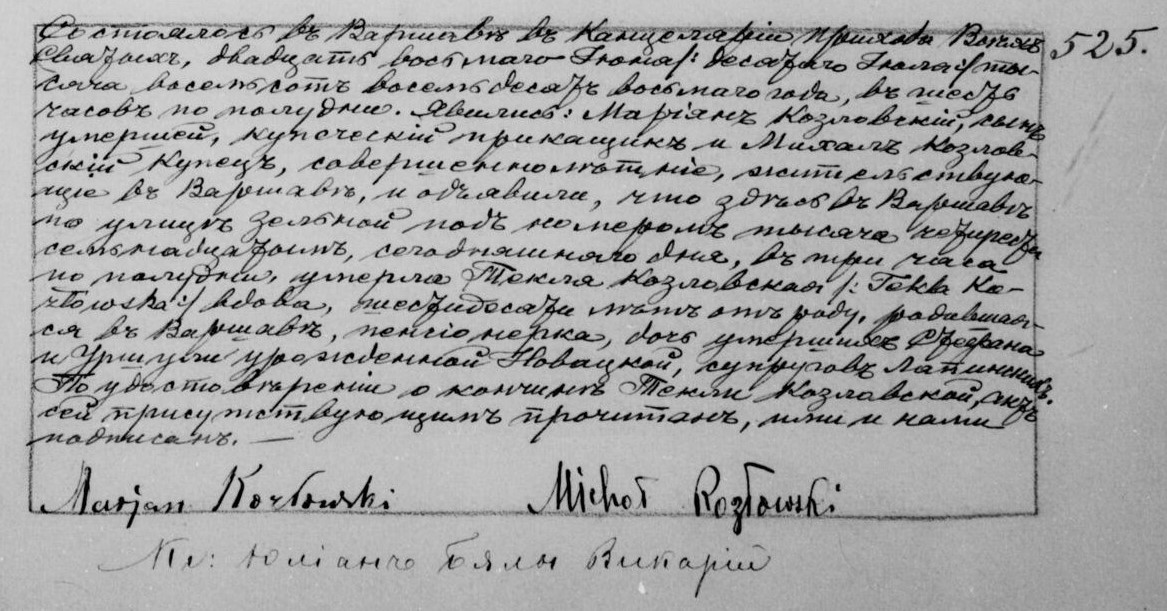 Состоялось въ Варшавѣ въ Канцеляріи прихода Всѣхъ 525.
Святыхъ, двадцать восьмаго Іюня /: десятаго Іюля :/ ты-
сяча восемьсотъ восемьдесятъ восьмаго года, въ шесть
часовъ по полудни. Явились: Маріянъ Козловскій, сынъ
умершей, купеческій прикащикъ и Михалъ Козлов-
скій купецъ, совершеннолѣтніе, жительствую-
щіе въ Варшавѣ, и объявили, что здѣсь въ Варшавѣ
по улицѣ Зельной подъ номеромъ тысяча четыреста
семьнадцатымъ, сегодняшняго дня, въ три часа
по полудни, умерла Текля Козловская /: Tekla Ko-
złowska :/ вдова, шестидесяти лѣтъ отъ роду, родившая-
ся въ Варшавѣ, пенсіонерка, дочь умершихъ Стефана
и Уршули урожденной Новацкой, супруговъ Лапинскихъ.
По удостовѣреніи о кончинѣ Текли Козловской, актъ
сей присутствующимъ прочитанъ, ими и нами
подписанъ. —
Marjan Kozłowski Michał Kozłowski
Кс: Юліанъ Бялы Викарій